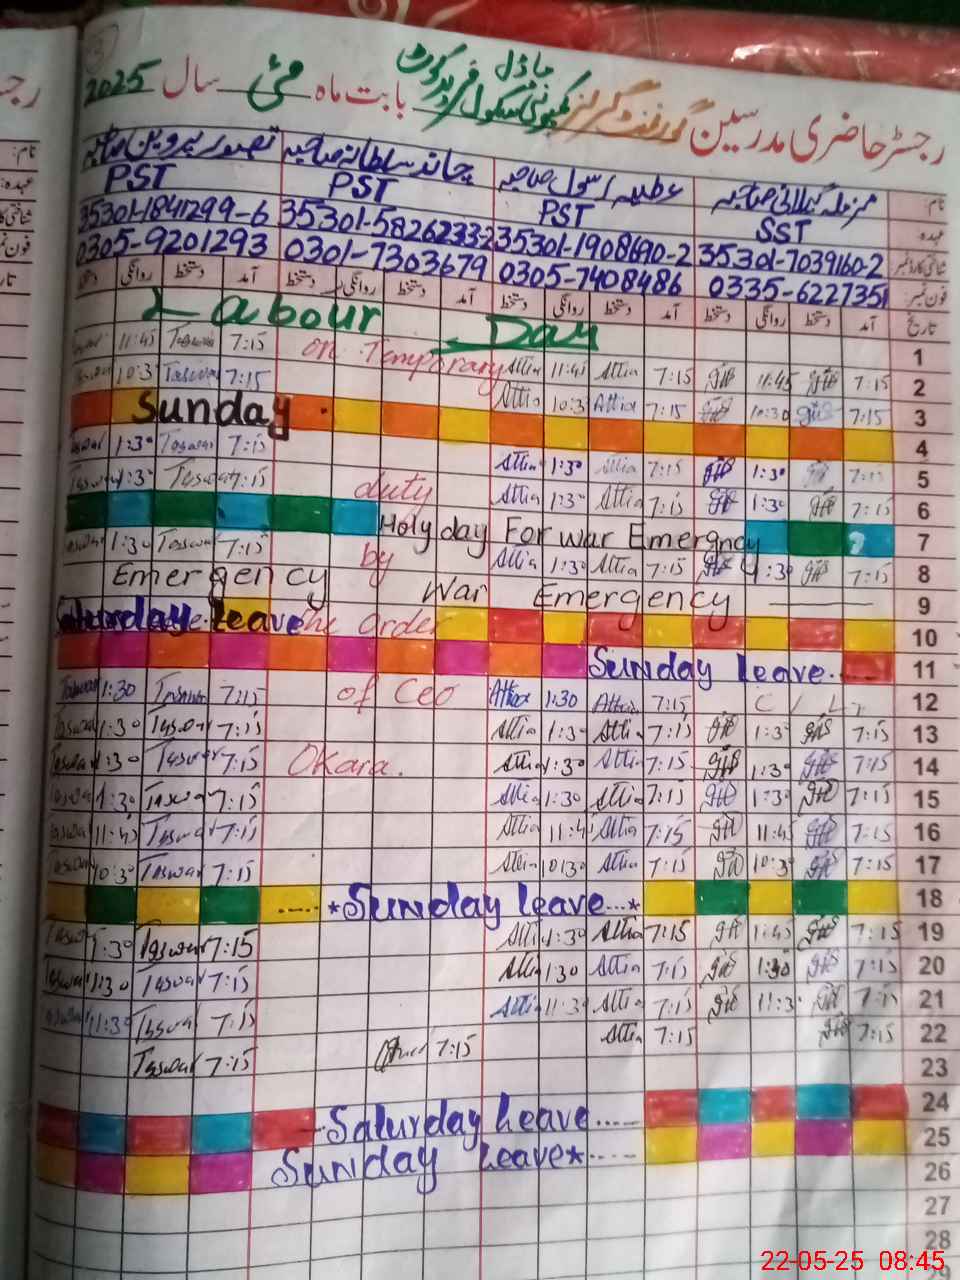 رجسٹر حاضری مدرسین گورنمنٹ گرلز کمیونٹی ماڈل سکول فرید کوٹ بابت ماہ مئی سال 2025
نام: عطیہ رسول صاحبہ چاند سلطانہ صاحبہ تصور پروین صاحبہ
عہدہ SST PST PST PST
شناختی کارڈ نمبر 35301-7039160-2 35301-1908690-2 35301-5826233-2 35301-1841299-6
فون نمبر: 0335-6227351 0305-7408486 0301-7303679 0305-9201293
تاریخ آمد دستخط روانگی دستخط آمد دستخط روانگی دستخط آمد دستخط روانگی دستخط آمد دستخط روانگی دستخط
Labour Day 1
11:45 Taswar 7:15 on Temporary Attia 11:45 Attia 7:15 11:45 7:15 2
10:3 Taswar 7:15 Attia 10:3 Attia 7:15 10:30 7:15 3
Sunday 4
Taswar 1:30 Taswar 7:15 Attia 1:30 Attia 7:15 1:30 7:15 5
Taswar 1:30 Taswar 7:15 duty Attia 1:30 Attia 7:15 1:30 7:15 6
Holy day For war Emergncy 7
Taswar 1:30 Taswar 7:15 by Attia 1:30 Attia 7:15 1:30 7:15 8
Emergency War Emergency 9
Saturday leave the Order 10
Sunday leave.. 11
Taswar 1:30 Taswar 7:15 of Ceo Attia 1:30 Attia 7:15 C / L 12
Taswar 1:30 Taswar 7:15 Attia 1:30 Attia 7:15 1:30 7:15 13
Taswar 1:30 Taswar 7:15 Okara. Attia 1:30 Attia 7:15 1:30 7:15 14
Taswar 1:30 Taswar 7:15 Attia 1:30 Attia 7:15 1:30 7:15 15
Taswar 11:45 Taswar 7:15 Attia 11:45 Attia 7:15 11:45 7:15 16
Taswar 10:30 Taswar 7:15 Attia 10:30 Attia 7:15 10:30 7:15 17
....*Sunday leave...* 18
Taswar 1:30 Taswar 7:15 Attia 1:30 Attia 7:15 1:45 7:15 19
Taswar 1:30 Taswar 7:15 Attia 1:30 Attia 7:15 1:30 7:15 20
Taswar 11:30 Taswar 7:15 Attia 11:30 Attia 7:15 11:30 7:15 21
Taswar 7:15 7:15 Attia 7:15 7:15 22
23
Saturday leave..... 24
Sunday leave*..... 25
26
27
28
22-05-25 08:45